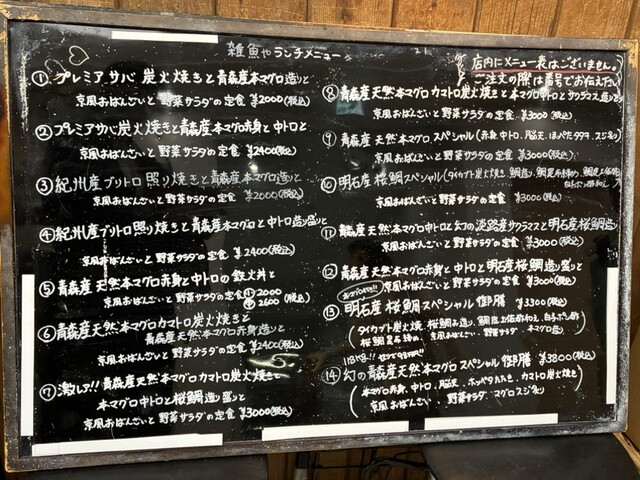 雑魚や ランチメニュー
店内にメニュー表はございません。
ご注文の際は番号でお伝え下さい
① プレミアサバ 炭火焼きと青森産本マグロ造りと
京風おばんざいと 野菜サラダの定食 ¥2000(税込)
② プレミアサバ炭火焼きと青森産本マグロ赤身と中トロと
京風おばんざいと 野菜サラダの定食 ¥2400(税込)
③ 紀州産ブリトロ 照り焼きと青森産本マグロ造りと
京風おばんざいと 野菜サラダの定食 ¥2000(税込)
④ 紀州産ブリトロ照り焼きと青森産本マグロと中トロ造り盛りと
京風おばんざいと 野菜サラダの定食 ¥2400(税込)
⑤ 青森産天然本マグロ赤身と中トロの鉄火丼と
京風おばんざいと 野菜サラダの定食 小 2000 大 2600 (税込)
⑥ 青森産天然本マグロカマトロ炭火焼きと
青森産天然本マグロ赤身造りと
京風おばんざいと 野菜サラダの定食 ¥2400(税込)
⑦ 激レア!! 青森産天然本マグロカマトロ炭火焼きと
本マグロ中トロと桜鯛造り盛りと
京風おばんざいと 野菜サラダの定食 ¥3000(税込)
⑧ 青森産 天然本マグロ カマトロ炭火焼きと 本マグロ中トロとサクラマス造りと
京風おばんざいと 野菜サラダの定食 ¥3000(税込)
⑨ 青森産 天然本マグロ スペシャル(赤身 中トロ、脳天、ほほたたき、スジ煮)
京風おばんざいと 野菜サラダの定食 ¥3000(税込)
⑩ 明石産 桜鯛スペシャル(タイカブト炭火焼き、鯛造り、
京風おばんざいと 野菜サラダの定食 ¥3000(税込)
⑪ 青森産天然本マグロ中トロと幻の淡路産サクラマスと明石産桜鯛造り
京風おばんざいと 野菜サラダの定食 ¥3000(税込)
⑫ 青森産 天然本マグロ赤身と中トロと明石産桜鯛造り盛りと
京風おばんざいと 野菜サラダの定食 ¥3000(税込)
⑬ 明石産 桜鯛スペシャル 御膳 ¥3300(税込)
(タイカブト炭火焼 桜鯛お造り、
京風おばんざい 野菜サラダ 本マグロ造)
⑭ 幻の青森産天然本マグロ スペシャル 御膳 ¥3800(税込)
(本マグロ赤身、中トロ、脳天、ホッペタたたき、カマトロ炭火焼き
京風おばんざい 野菜サラダ マグロスジ煮)